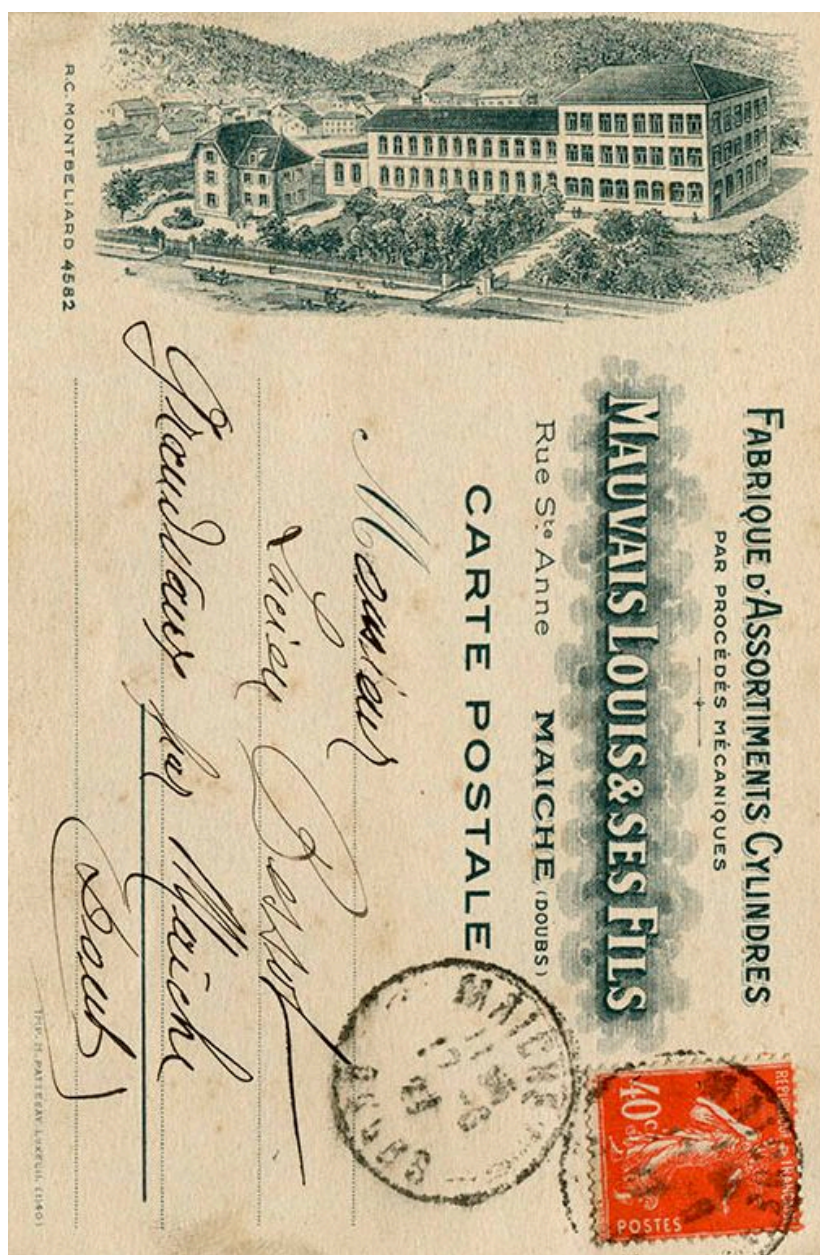 FABRIQUE D'ASSORTIMENTS CYLINDRES
PAR PROCÉDÉS MÉCANIQUES
MAUVAIS LOUIS & SES FILS
Rue Ste Anne MAICHE (DOUBS)
CARTE POSTALE
Monsieur
Lucien
Grandvaux par Maiche
Doubs
R.C. MONTBELIARD 4582
MAICHE
DOUBS
40c
POSTES